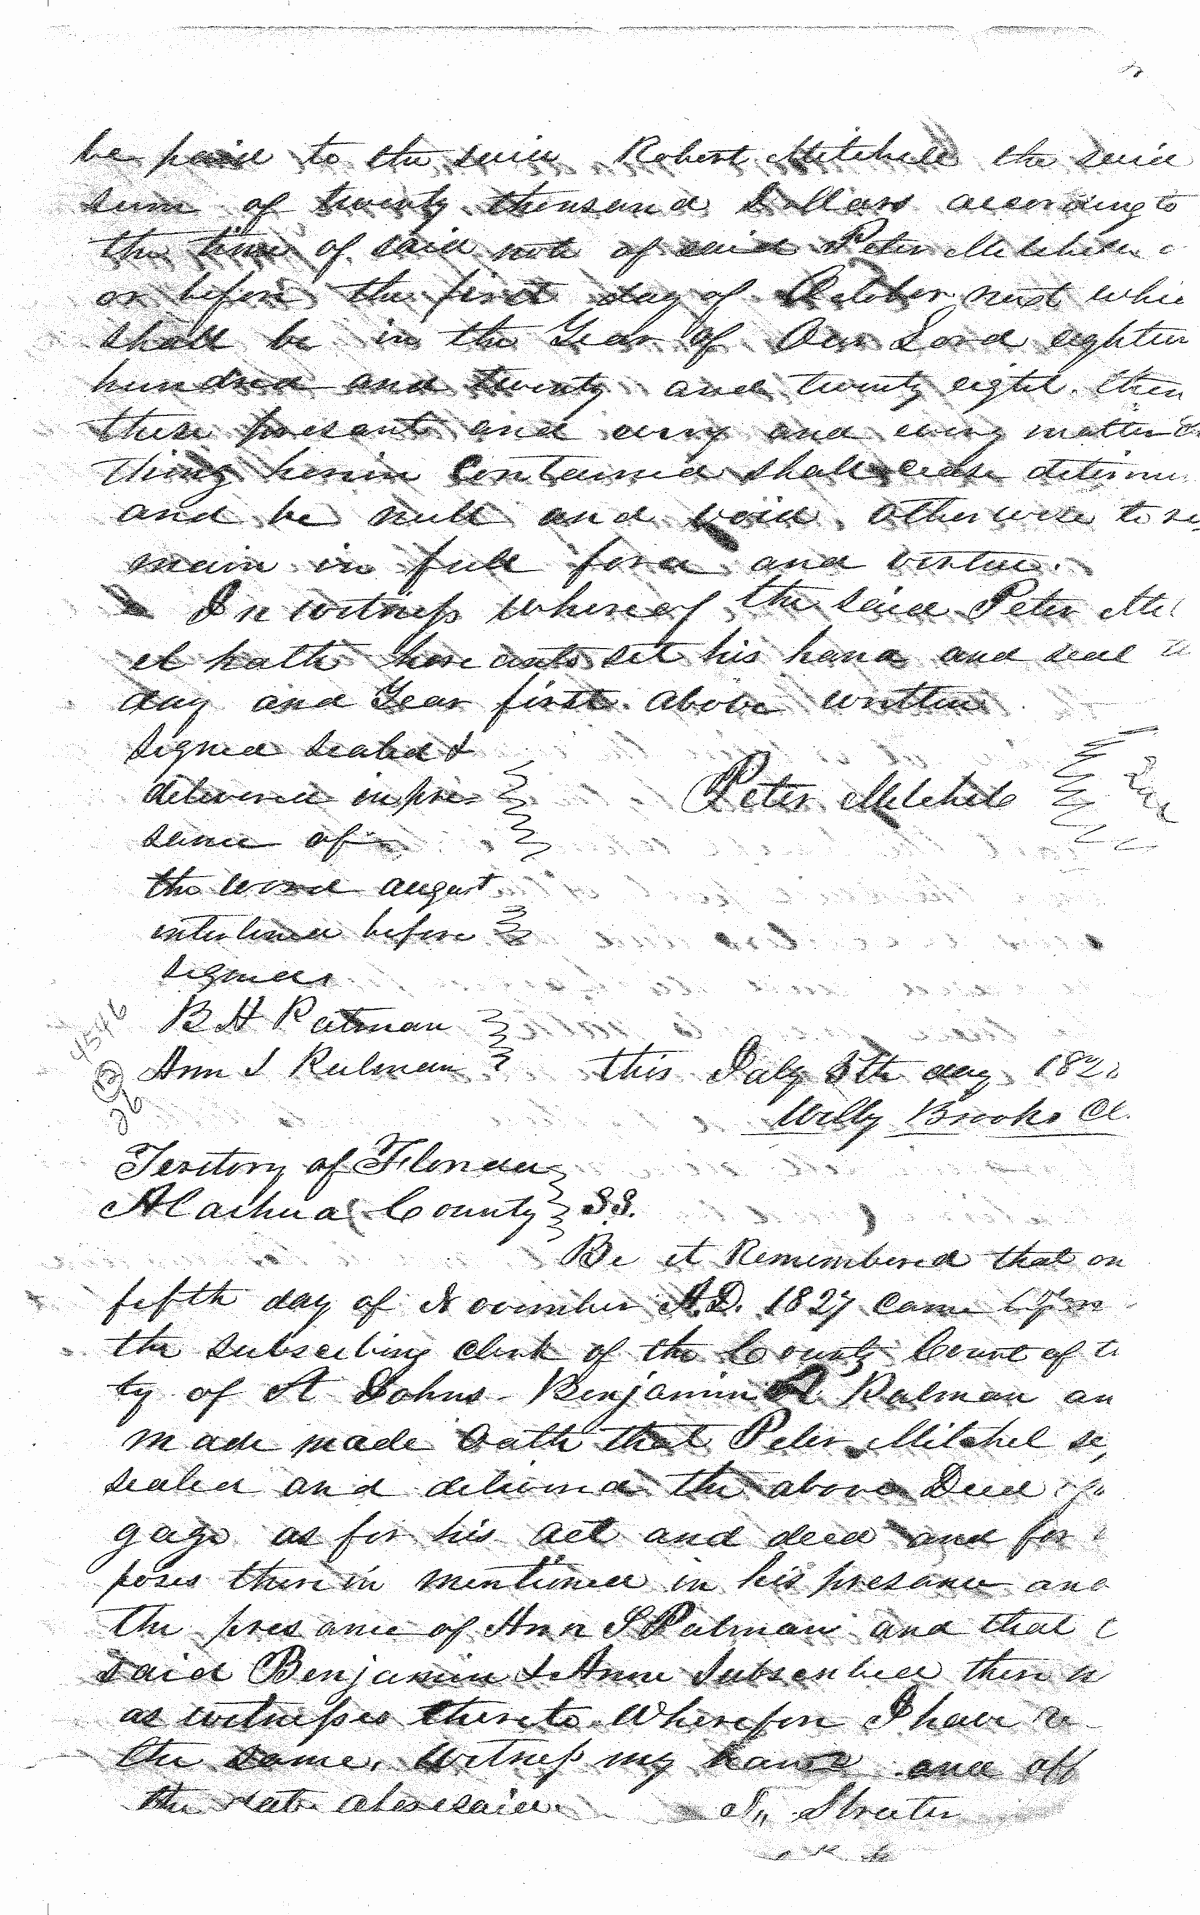 be paid to the said Robert Mitchell the said
sum of twenty thousand Dollars according to
the time of said note of said Peter Mitchell
or before the first day of October next whic
shall be in the Year of Our Lord eighteen
hundred and twenty and twenty eight. then
these presents and every and every matter &
thing herein Contained shall cease determine
and be null and void. otherwise to re
main in full force and virtue.
In witness whereof the said Peter Mit
el hath hereunto set his hand and seal
day and Year first above written
signed sealed &
delivered in pre
sance of
the word august
interlined before
signed
Peter Mitchel
Seal
B H Patman
Ann S Putman
4546
(12)
26
this July 8th day 182
Willy Brooks Cl.
Teritory of Florida
Alachua County S.S.
Be it Remembered that on
fifth day of November A.D. 1827 came before
the subscribing clerk of the County Court of
ty of St Johns Benjamin A Putman an
made made Oath that Peter Mitchel se
sealed and delivered the above Deed
gage as for his act and deed and for
poses therein mentioned in his presance and
the presance of Ann S Putman and that
said Benjamin & Anne Subscribed there
as witnesses thereto. Wherefore I have re
the same. Witness my hand and off
the date aforesaid. Streeter